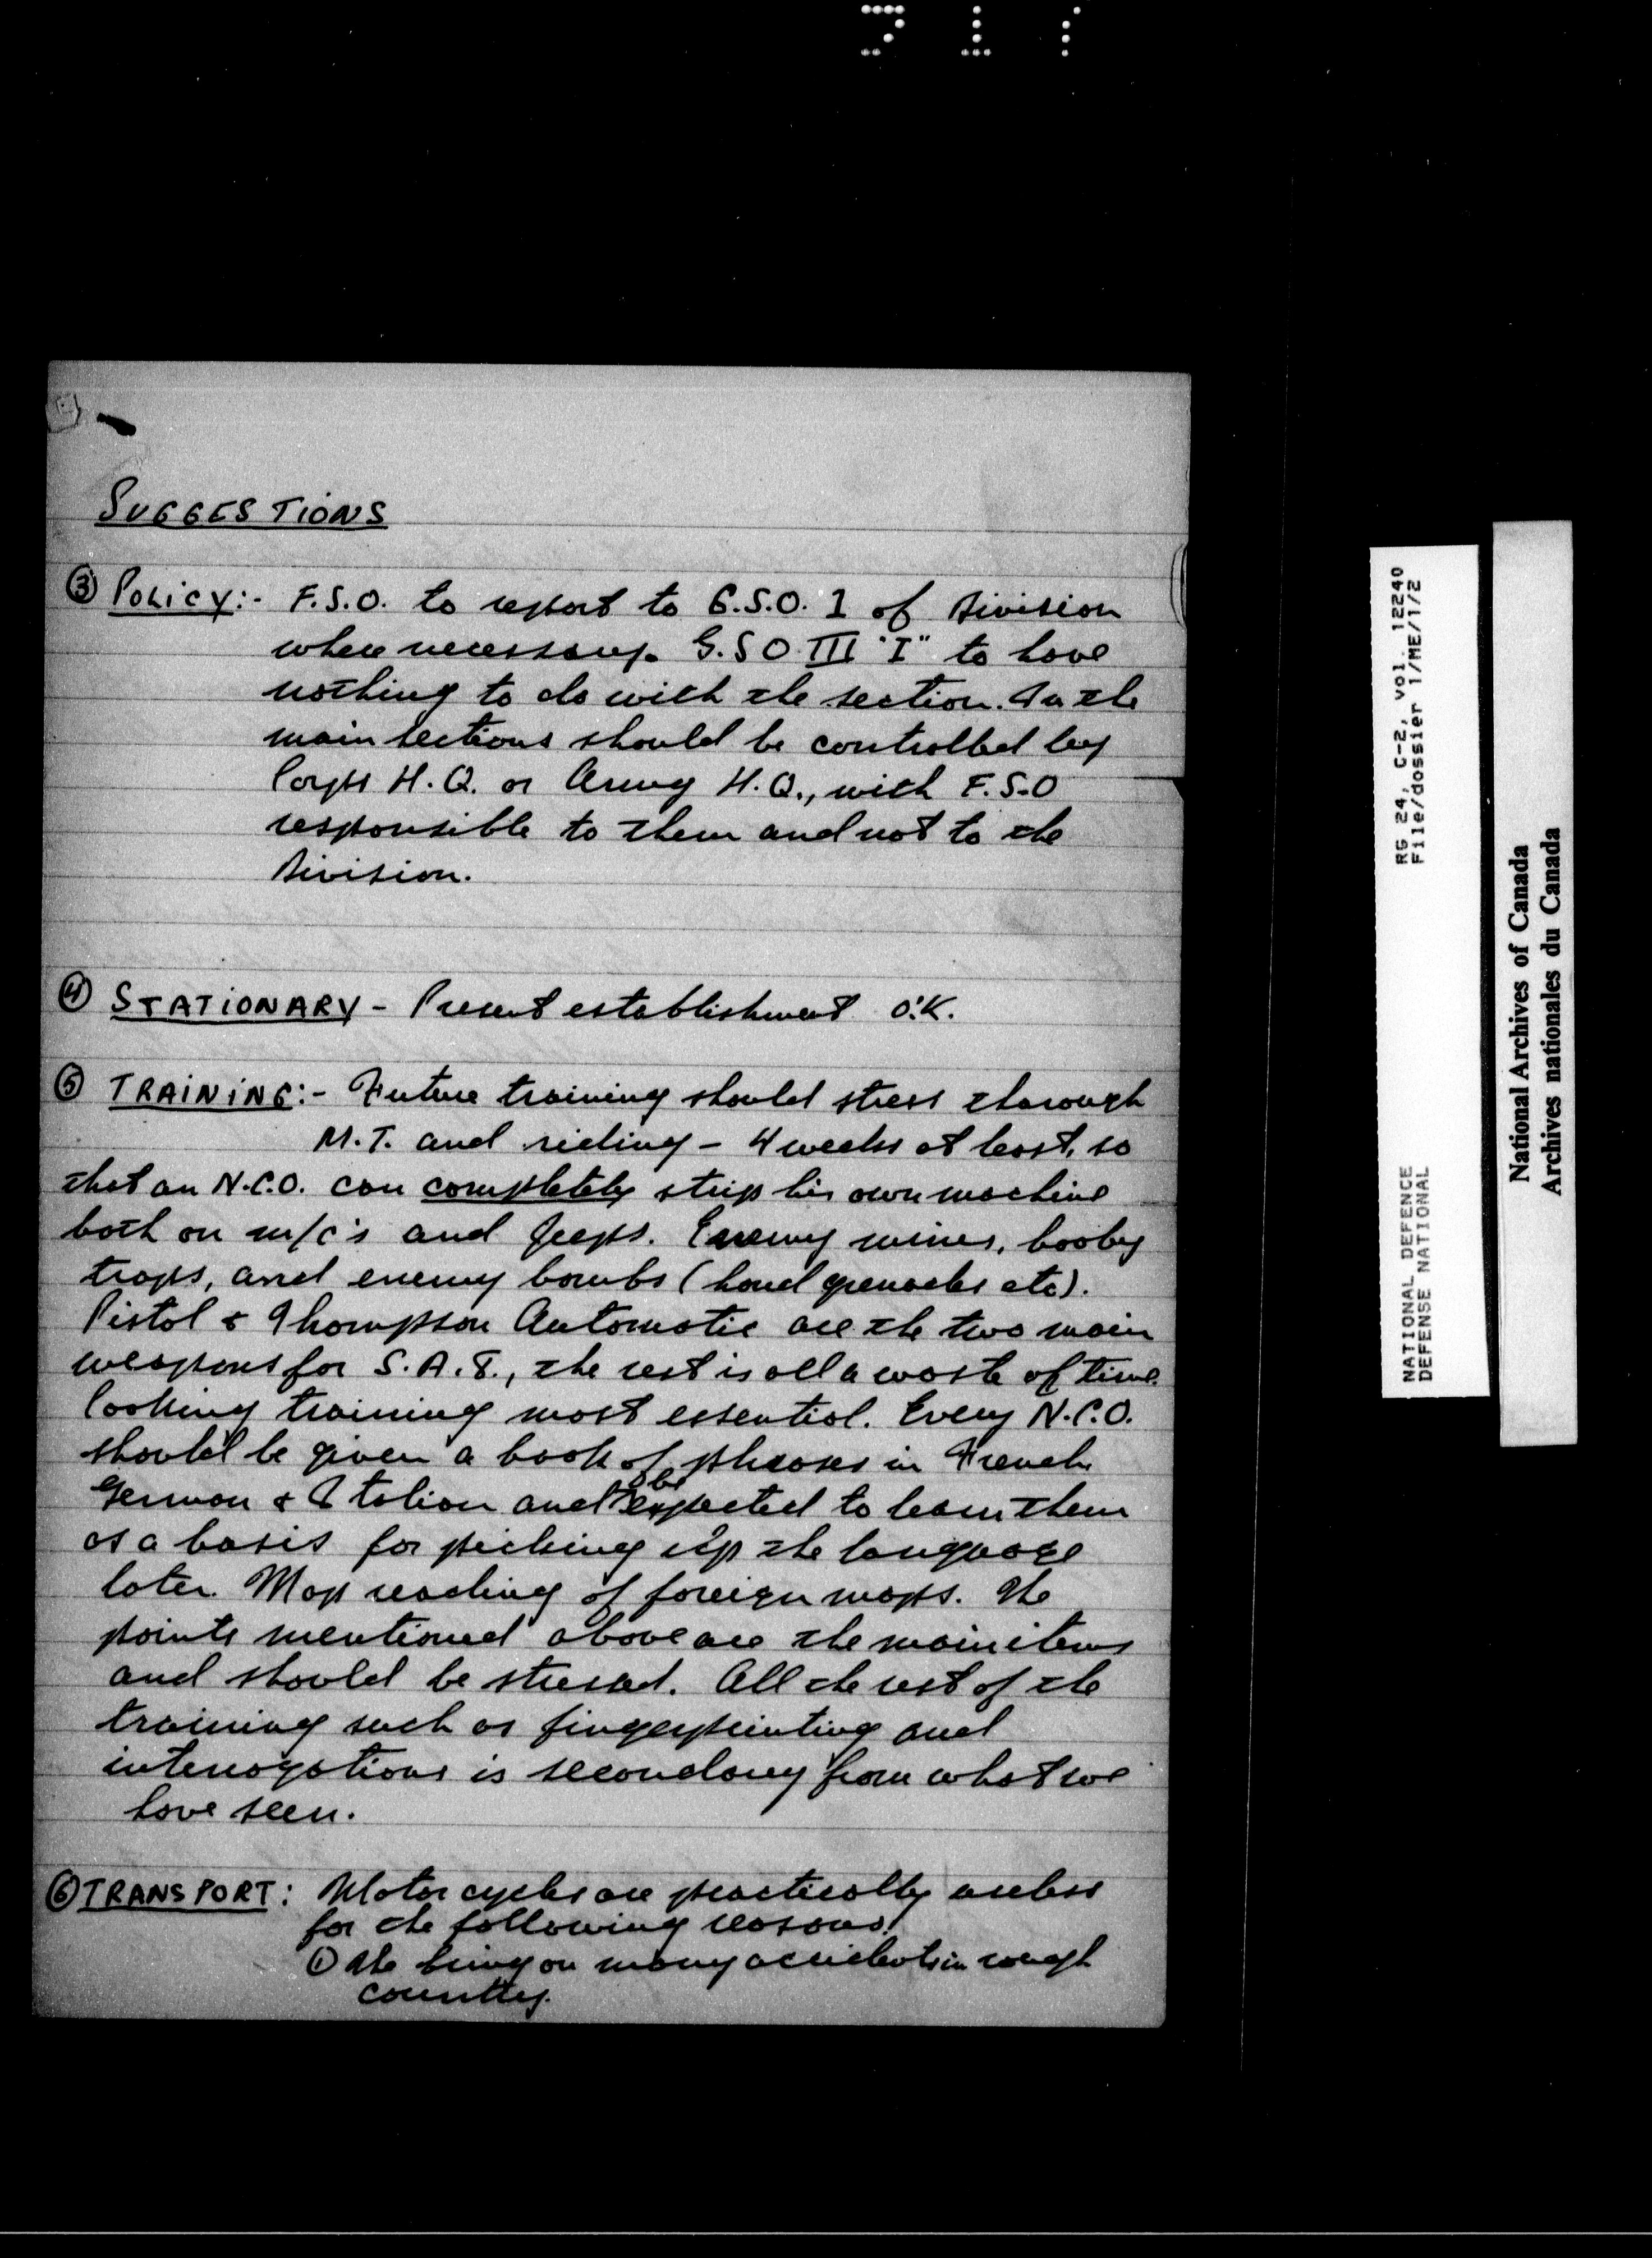 SUGGESTIONS
③ POLICY:- F.S.O. to report to G.S.O. I of Division
where necessary. G.S.O III "I" to have
nothing to do with the section. In the
main sections should be controlled by
Corps H.Q. or Army H.Q., with F.S.O
responsible to them and not to the
Division.
④ STATIONARY - Present establishment O.K.
⑤ TRAINING:- Future training should stress thorough
M.T. and riding - 4 weeks at least, so
that an N.C.O. can completely strip his own machine
both on m/c's and Jeeps. Enemy mines, booby
traps, and enemy bombs (hand grenades etc).
Pistol & Thompson Automatic are the two main
weapons for S.A.T., the rest is all a waste of time.
Cooking training most essential. Every N.C.O.
should be given a book of phrases in French
German & Italian and to be expected to learn them
as a basis for picking up the language
later. Map reading of foreign maps. The
points mentioned above are the main items
and should be stressed. All the rest of the
training such as fingerprinting and
interrogations is secondary from what we
have seen.
⑥ TRANSPORT: Motor cycles are practically useless
for the following reasons.
① The bring on many accidents in rough
country.
RG 24, C-2, vol. 12240
File/dossier 1/ME/1/2
NATIONAL DEFENCE
DEFENSE NATIONAL
National Archives of Canada
Archives nationales du Canada